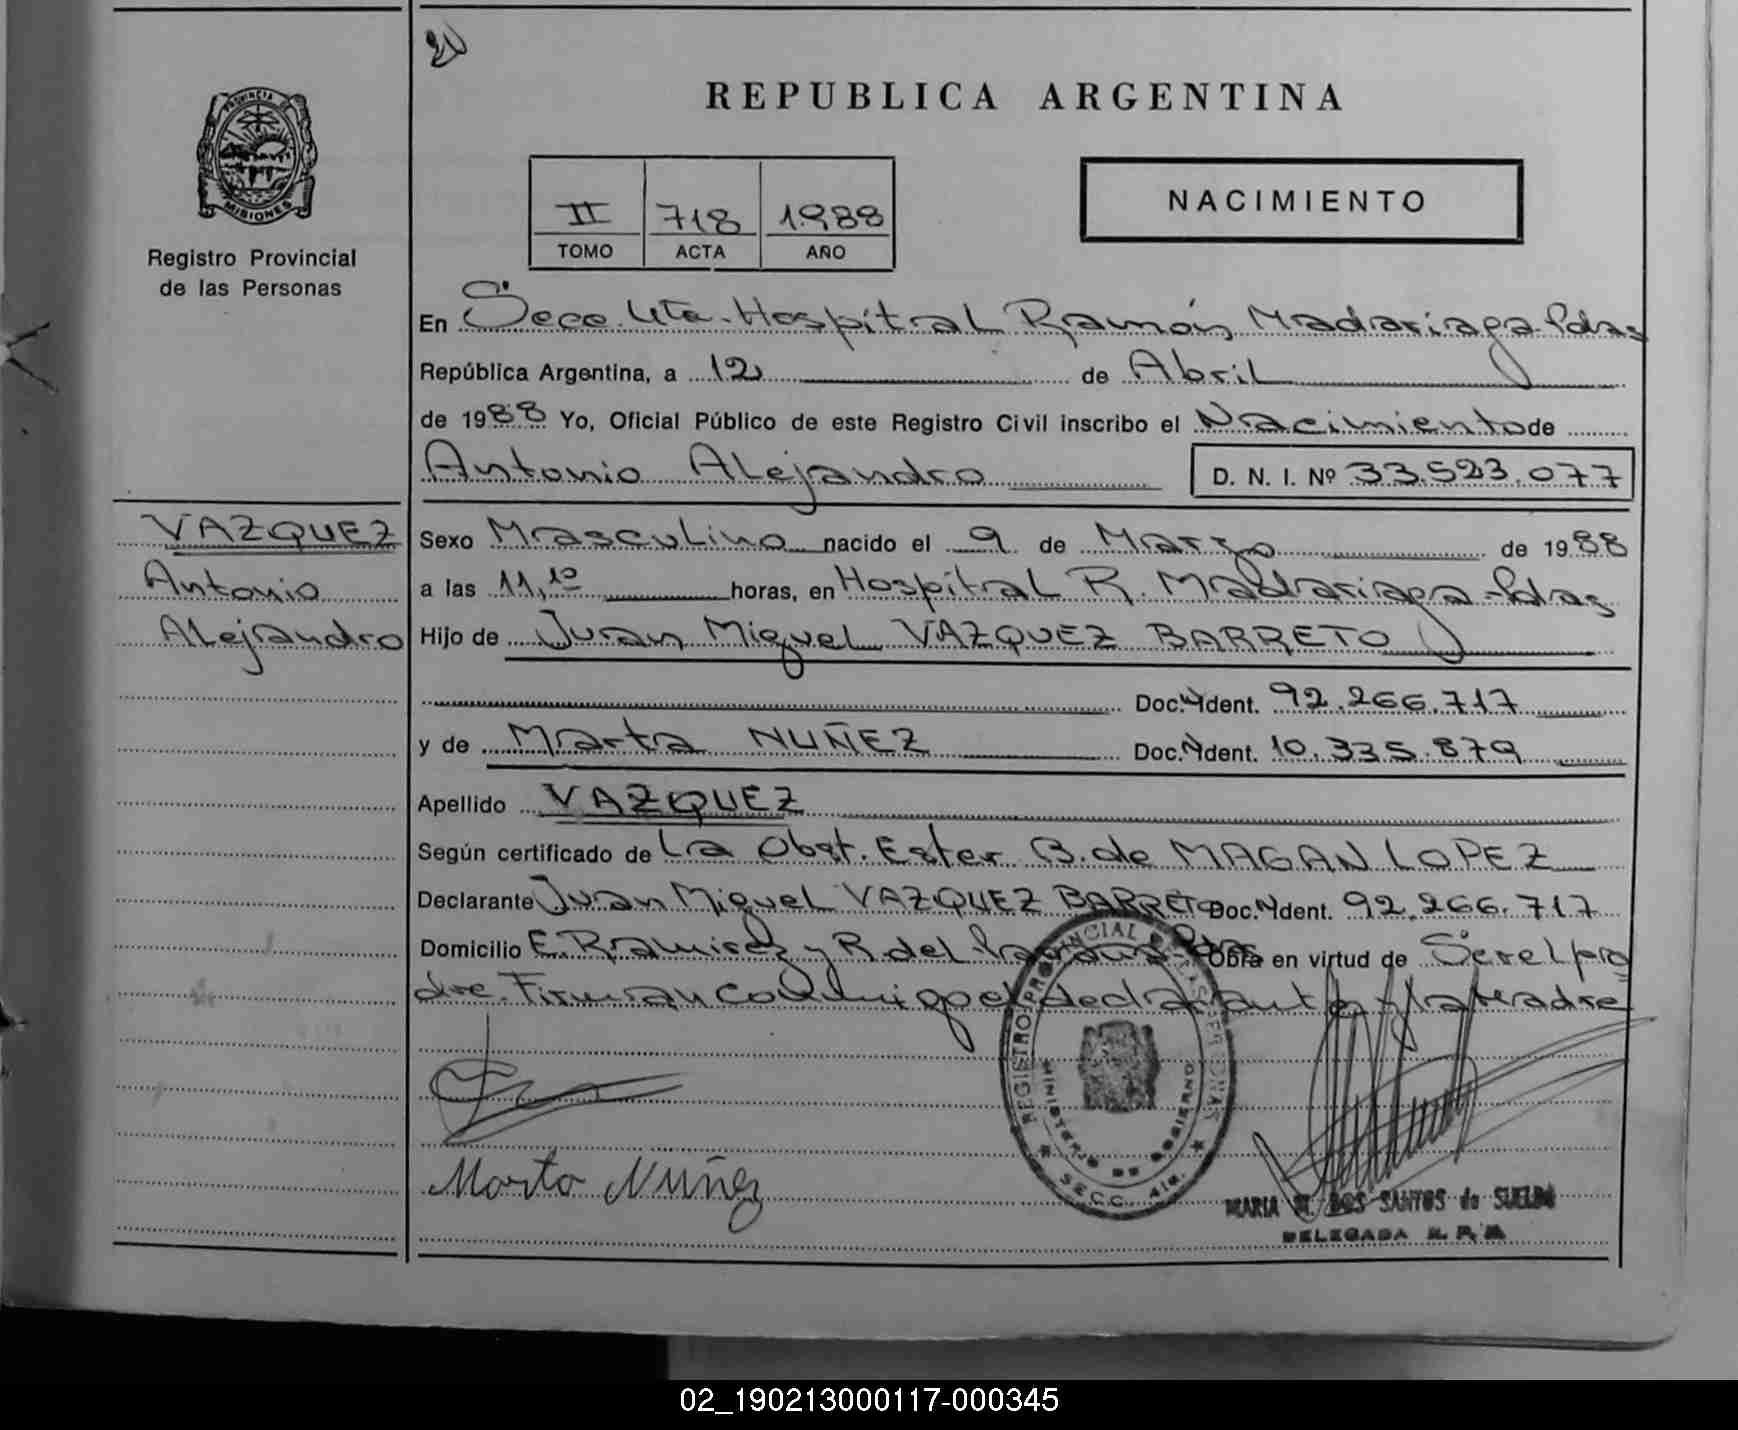 REPUBLICA ARGENTINA
PROVINCIA DE
MISIONES
Registro Provincial
de las Personas
II 718 1988
TOMO ACTA AÑO
NACIMIENTO
En Secc. 4ta. Hospital Ramón Madariaga-Pdas
República Argentina, a 12 de Abril
de 1988 Yo, Oficial Público de este Registro Civil inscribo el Nacimiento de
Antonio Alejandro D. N. I. Nº 33.523.077
VAZQUEZ
Antonio
Alejandro
Sexo Masculino nacido el 9 de Marzo de 1988
a las 11,10 horas, en Hospital R. Madariaga-Pdas
Hijo de Juan Miguel VAZQUEZ BARRETO
Doc. Ident. 92.266.717
y de Marta NUÑEZ Doc. Ident. 10.335.879
Apellido VAZQUEZ
Según certificado de La Obst. Ester B. de MAGAN LOPEZ
Declarante Juan Miguel VAZQUEZ BARRETO Doc. Ident. 92.266.717
Domicilio E. Ramirez y R. del Obra en virtud de Ser el pa
dre. Firman conmigo el declarante y la Madre
REGISTRO PROVINCIAL DE LAS PERSONAS
MINISTERIO DE GOBIERNO
SECC. 4ta.
Marta Nuñez
MARIA M. DOS SANTOS de SUELDO
DELEGADA R. P. P.
02_190213000117-000345